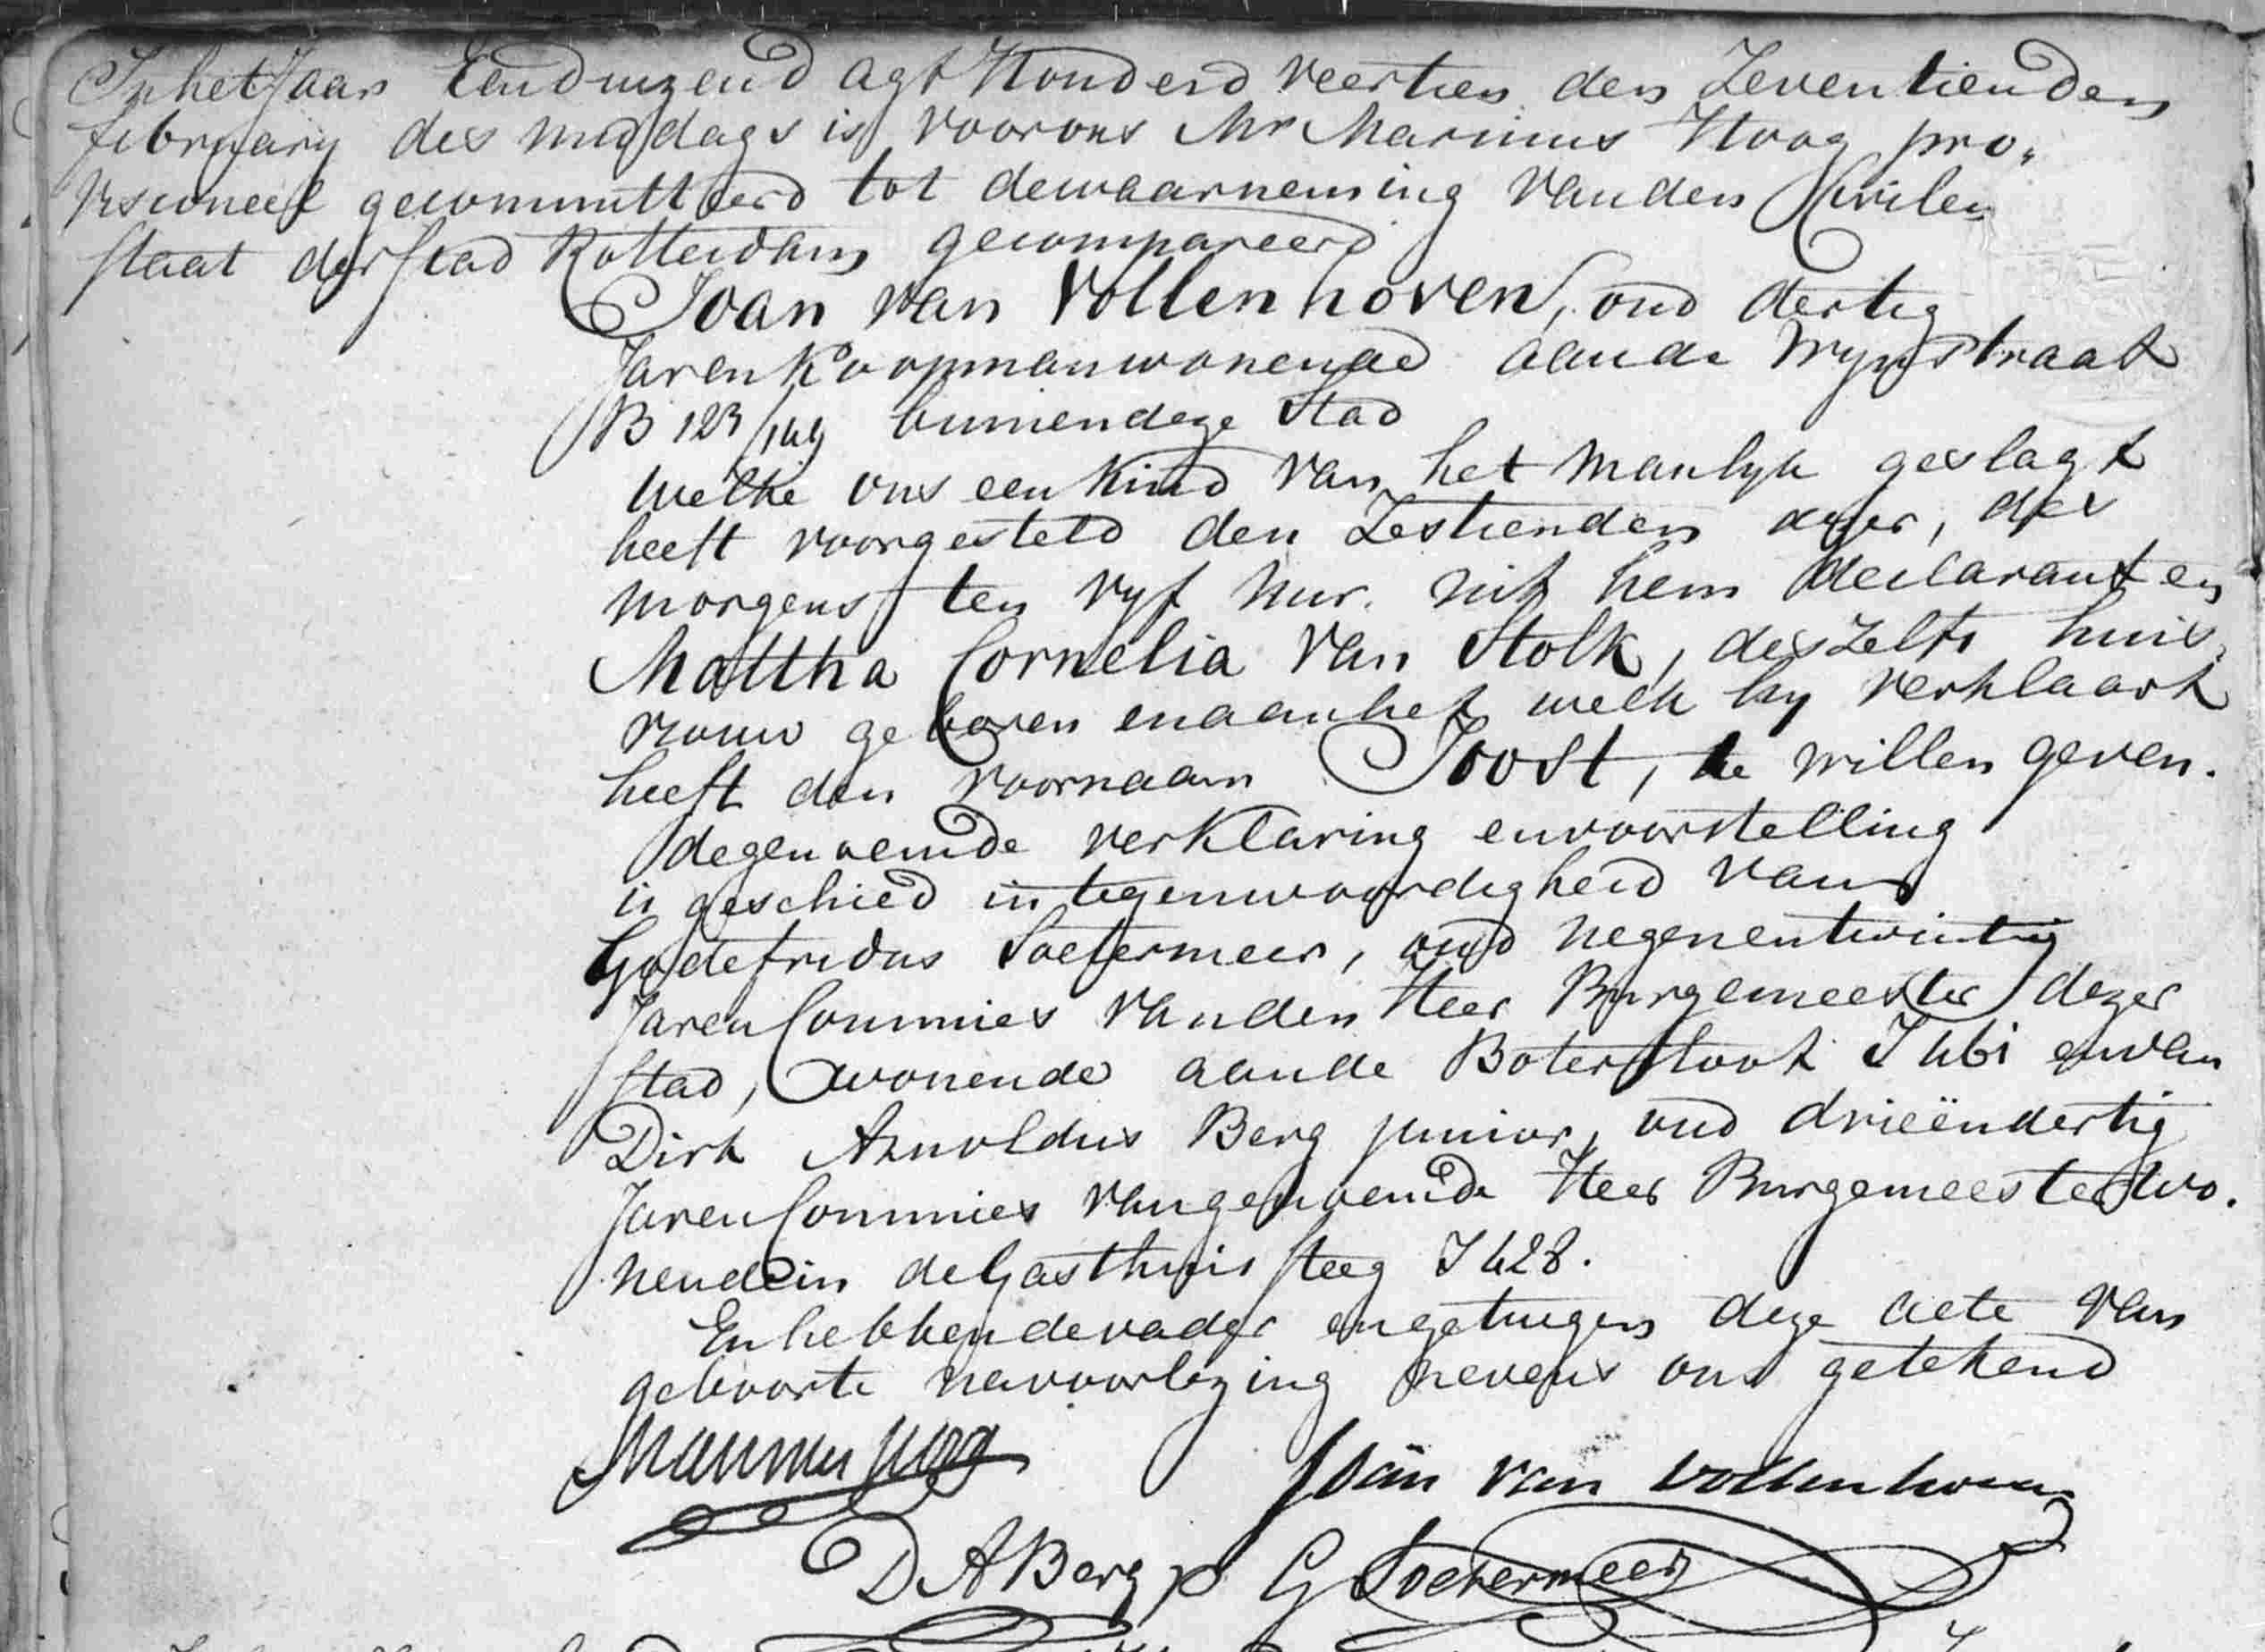 In het Jaar Eenduizend agt Honderd veertien den Zeventienden
february des middags is voor ons Mr Marinus Hoog pro„
visioneel gecommitteerd tot de waarneming van den Civilen
staat der stad Rotterdam gecompareerd
Joan van Vollenhoven, oud dertig
Jaren Koopman wonende aan de Wynstraat
B 123/149 binnen deze Stad
welke ons een kind van het manlyk geslagt
heeft voorgesteld den Zestienden dezer, des
morgens ten vyf uur. uit hem declarant en
Martha Cornelia van Stolk, deszelfs huis„
vrouw geboren en aan het welk hy verklaart
heeft den voornaam Joost, te willen geven.
de genoemde verklaring en voorstelling
is geschied in tegenwoordigheid van
Godefridus Soetermeer, oud negenentwintig
Jaren Commies van den Heer Burgemeester dezer
stad, wonende aan de Botersloot I 461 en van
Dirk Arnoldus Berg junior, oud drieëndertig
Jaren Commies van genoemde Heer Burgemeester wo.
nende in de Gasthuis steeg I 428.
En hebben de vader en getuigen deze acte van
geboorte na voorlezing nevens ons getekend
Marinus Hoog
Joan van Vollenhoven
D A Berg jr G Soetermeer